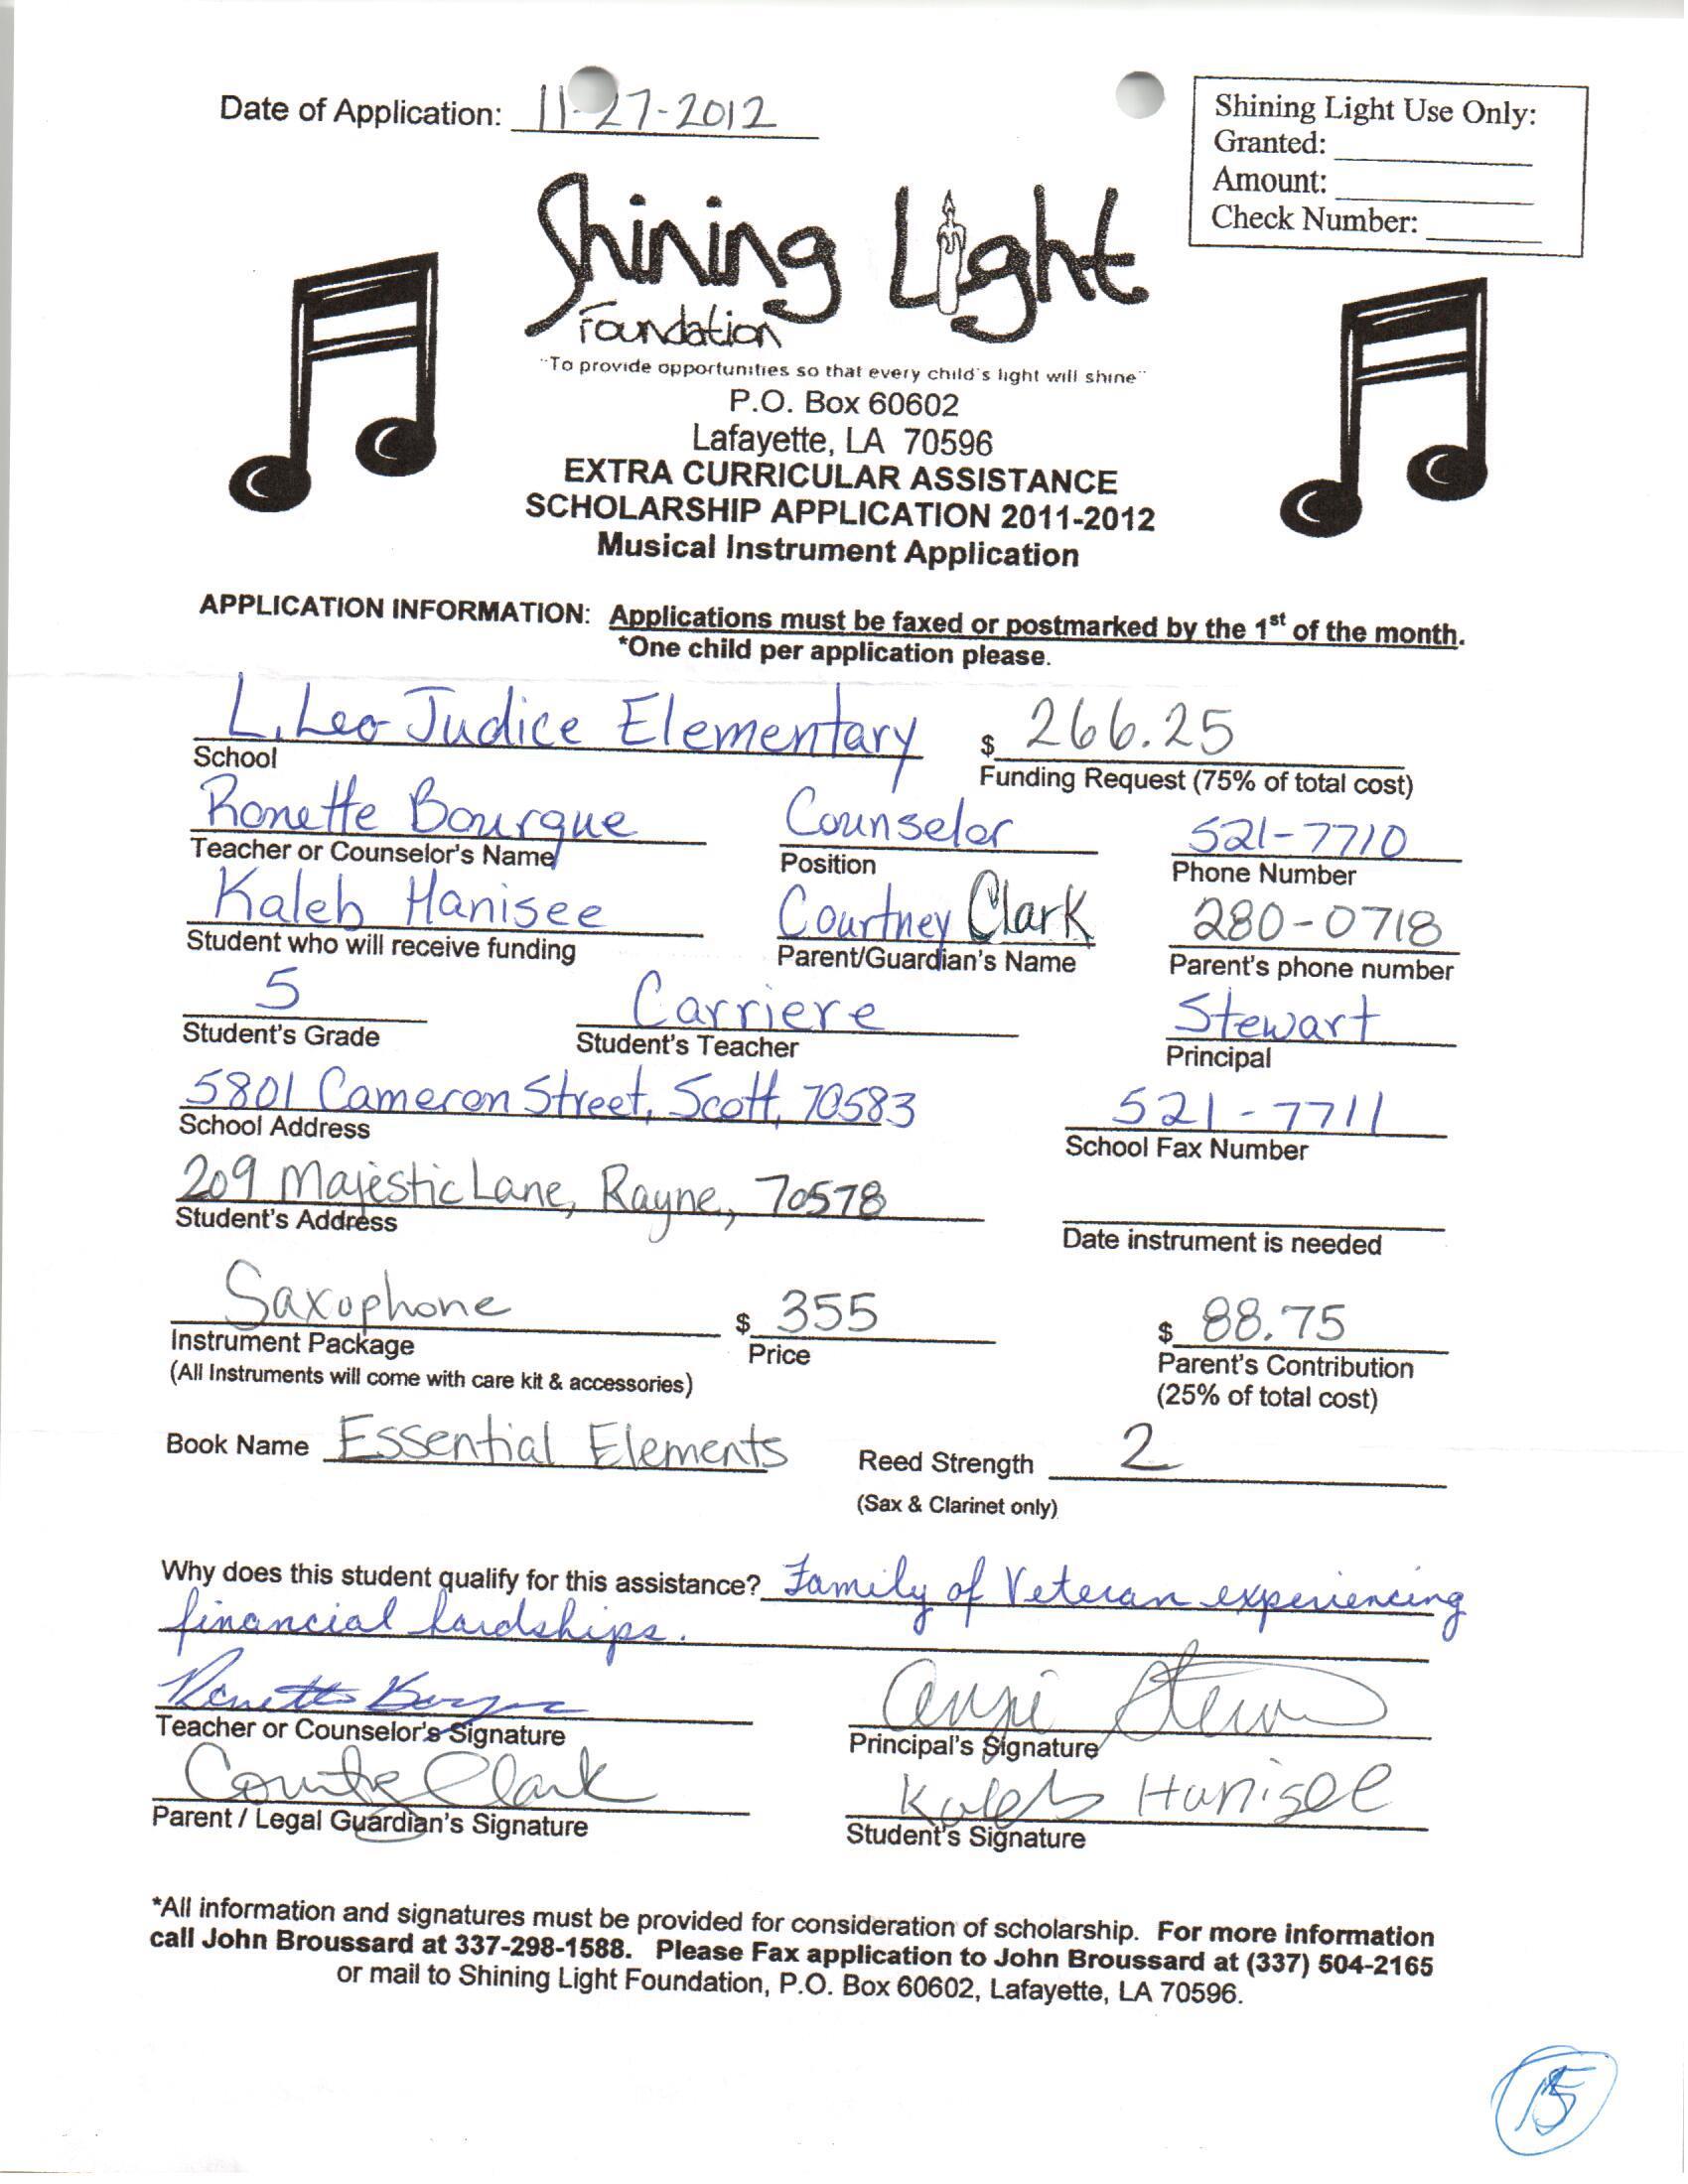 Date of Application: 11-27-2012
Shining Light Use Only:
Granted:
Amount:
Check Number:
Shining Light
Foundation
"To provide opportunities so that every child's light will shine"
P.O. Box 60602
Lafayette, LA 70596
EXTRA CURRICULAR ASSISTANCE
SCHOLARSHIP APPLICATION 2011-2012
Musical Instrument Application
APPLICATION INFORMATION: Applications must be faxed or postmarked by the 1st of the month.
*One child per application please.
L. Leo Judice Elementary $ 266.25
School Funding Request (75% of total cost)
Ronette Bourque Counselor 521-7710
Teacher or Counselor's Name Position Phone Number
Kaleb Hanisee Courtney Clark 280-0718
Student who will receive funding Parent/Guardian's Name Parent's phone number
5 Carriere Stewart
Student's Grade Student's Teacher Principal
5801 Cameron Street, Scott, 70583 521-7711
School Address School Fax Number
209 Majestic Lane, Rayne, 70578
Student's Address Date instrument is needed
Saxophone $ 355 $ 88.75
Instrument Package Price Parent's Contribution
(All Instruments will come with care kit & accessories) (25% of total cost)
Book Name Essential Elements Reed Strength 2
(Sax & Clarinet only)
Why does this student qualify for this assistance? Family of Veteran experiencing
financial hardships.
Ronette Bourque Angie Stewart
Teacher or Counselor's Signature Principal's Signature
Courtney Clark Kaleb Hanisee
Parent / Legal Guardian's Signature Student's Signature
*All information and signatures must be provided for consideration of scholarship. For more information
call John Broussard at 337-298-1588. Please Fax application to John Broussard at (337) 504-2165
or mail to Shining Light Foundation, P.O. Box 60602, Lafayette, LA 70596.